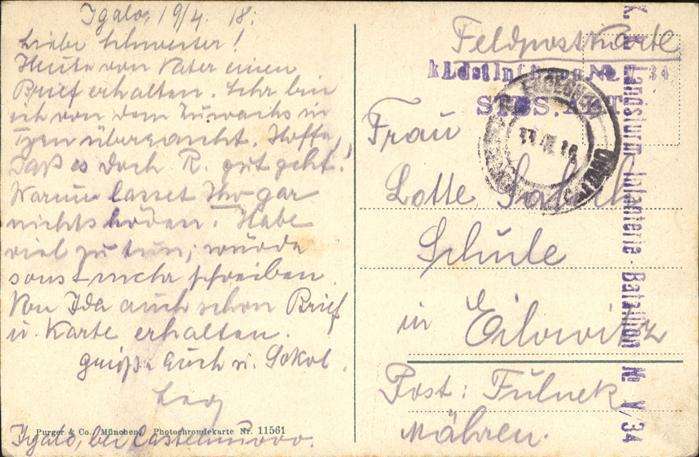 Igalo, 19/4. 18.
Liebe Schwester!
Heute von Vater einen
Brief erhalten. Sehr bin
ich von dem Zuwachs in
überrascht. Hoffe,
daß es doch R. gut geht!
Warum lasset Ihr gar
nichts hören? Habe
viel zu tun, würde
sonst mehr schreiben.
Von Ida auch schon Brief
u. Karte erhalten.
Grüße Euch u. Sokol.
Igalo, bei Castelnuovo.
Purger & Co., München. Photochromiekarte Nr. 11561
Feldpostkarte
k.k. Landsturm-Infanterie-Bataillon № V/34
Frau
Lotte
Schule
in Eilowitz
Post: Fulnek
Mähren.